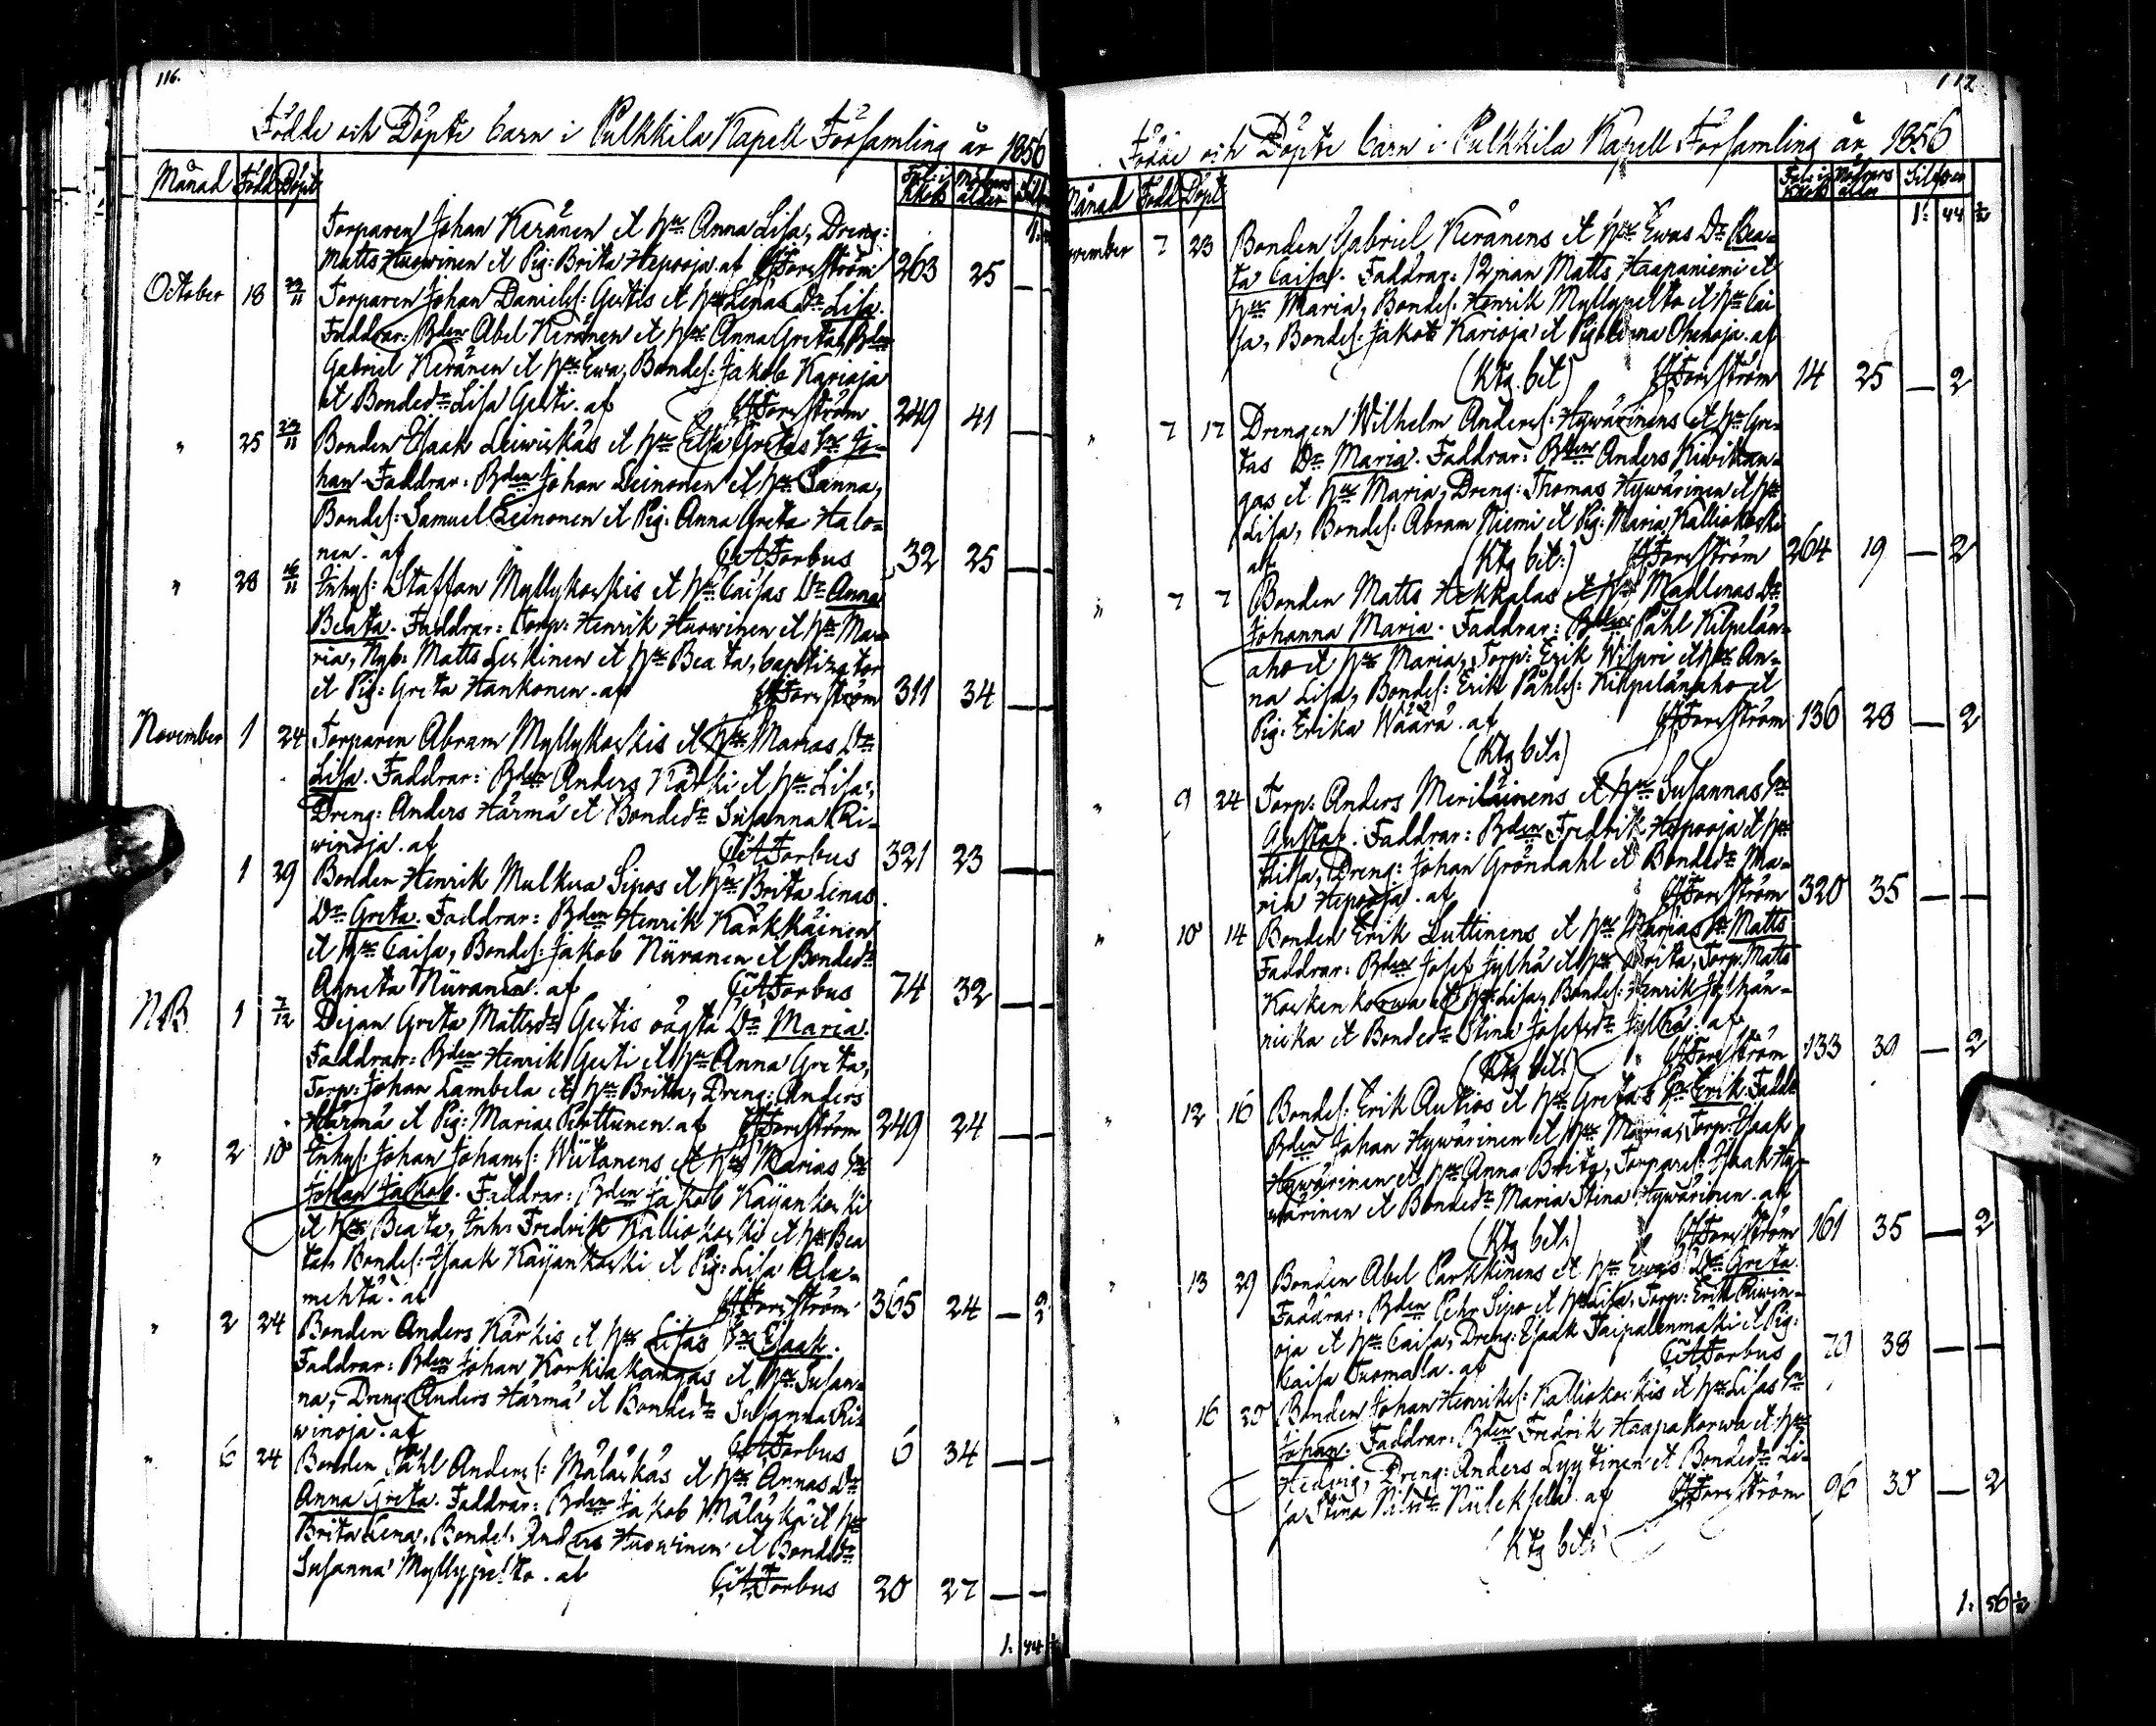 116.
Födde och Döpte barn i Pulkkila Kapell Församling år 1856
Månad Född Döpt Fol: i Kkob Modrens ålder
Torparen Johan Keränen et h:u Anna Lisa, Dreng:
Matts Huovinen et Pig: Brita Heposja. af Forsström 263 25 —
October 18 Torparen Johan Daniels: Gestis et h:us Lenas D:r Lisa.
Faddrar: B:den Abel Keränen et h:us Anna Greta, B:den
Gabriel Keränen et h:us Ewa, Bondes: Jakob Karioja
et Bonded:r Lisa Gesti. af Forsström 249 41 —
" 25 Bonden Isaak Leiwiskäs et h:us Elsa Gretas S:n Jo-
han. Faddrar: B:den Johan Leinonen et h:us Sanna,
Bondes: Samuel Leinonen et Pig: Anna Greta Halo-
nen. af Forbus 32 25 —
" 28 16/11 Inhys: Staffan Myllykoskis et h:us Caisas D:r Anna
Beata. Faddrar: Torp: Henrik Huovinen et h:us Ma-
ria, Nyb: Matts Leskinen et h:us Beata, baptizator
et Pig: Greta Hankonen. af Forsström 311 34 —
November 1 24 Torparen Abram Myllykoskis et h:us Marias D:r
Lisa. Faddrar: B:den Anders Kärki et h:us Lisa,
Dreng: Anders Härmä et Bonded:r Susanna Ri-
winoja. af Forbus 321 23 —
1 29 Bonden Henrik Mulkua Sipos et h:us Brita Lenas
D:r Greta. Faddrar: B:den Henrik Kärkkäinen
et h:us Caisa, Bondes: Jakob Niiranen et Bonded:r
Agneta Niiranen. af Forbus 74 32 —
NB. 1 7/12 Pigan Greta Mattsd:r Gestis oägta D:r Maria.
Faddrar: B:den Henrik Gesti et h:us Anna Greta,
Torp: Johan Lambela et h:us Britta, Dreng: Anders
Härmä et Pig: Maria Perttunen. af Forsström 249 24 —
" 2 10 Inhys: Johan Johans: Wiitanens et h:us Marias S:n
Johan Jakob. Faddrar: B:den Jakob Käyänkoski
et h:us Beata, Inh: Fredrik Kalliokoski et h:us Bea
ta, Bondes: Isaak Käyänkoski et Pig: Lisa Ala-
mehtä. af Forsström 365 24 — 2
" 2 24 Bonden Anders Kärkis et h:us Lisas S:n Isaak.
Faddrar: B:den Johan Korkiakangas et h:us Susan-
na, Dreng: Anders Härmä et Bonded:r Susanna Ri-
winoja. af Forbus 6 34 —
" 6 24 Bonden Påhl Anders: Mäläskäs et h:us Annas D:r
Anna Greta. Faddrar: B:den Jakob Mäläskä et h:us
Brita Lena, Bondes: Anders Huovinen et Bonded:r
Susanna Myllypelto. af Forbus 20 27 — —
1: 44
117
Födde och Döpte barn i Pulkkila Kapell Församling år 1856
Månad Född Döpt Fol: i Kkob Modrens ålder Silfver
1: 44 1/2
November 7 23 Bonden Gabriel Keränens et h:us Ewas D:r Bea-
ta Caisa. Faddrar: 12man Matts Haapaniemi et
h:us Maria, Bondes: Henrik Myllypelto et h:us Cai
sa, Bondes: Jakob Karioja et Pig: Ohenoja. af
(Ktg. bet) Forsström 14 25 — 2
" 7 17 Drengen Wilhelm Anders: Hywärinens et h:us Gre-
tas D:r Maria. Faddrar: B:den Anders Kiwikan-
gas et h:us Maria, Dreng: Thomas Hywärinen et h:us
Lisa, Bondes: Abram Niemi et Pig: Maria Kalliokoski
af (Ktg bet:) Forsström 264 19 — 2
" 7 7 Bonden Matts Hekkalas et h:us Madlenas D:r
Johanna Maria. Faddrar: B:den Påhl Kilpelän-
aho et h:us Maria, Torp: Erik Wilpri et h:us An-
na Lisa, Bondes: Erik Påhls: Kilpelänaho et
Pig: Erika Wäärä. af Forsström 136 28 — 2
(Ktg bet:)
" 9 24 Torp: Anders Meriläinens et h:us Susannas S:n
Gustaf. Faddrar: B:den Fredrik Heposja et h:us
Dreng: Johan Gröndahl et Bonded:r Ma-
ria Heposja. af Forsström 320 35 — —
" 10 14 Bonden Erik Luttinens et h:us Marias S:n Matts
Faddrar: B:den Josef Jylhä et h:us Brita, Torp: Matts
Koskenkorwa et h:us Lisa, Bondes: Henrik Jylhän-
niska et Bonded:r Stina Josefsd:r Jylhä. af
(Ktg bet:) Forsström 133 39 — 2
" 12 16 Bondes: Erik Autios et h:us Gretas S:n Erik. Fadd:
B:den Johan Hywärinen et h:us Maria, Torp: Isaak
Hywärinen et h:us Anna Brita, Torpares: Isaak Hy-
wärinen et Bonded:r Maria Stina Hywärinen. af
(Ktg bet:) Forsström 161 35 — 2
" 13 29 Bonden Abel Parkkinens et h:us Ewas D:r Greta.
Faddrar: B:den Pehr Sipo et h:us Lisa, Torp: Erik Riwin-
oja et h:us Caisa, Dreng: Isaak Taipalenmäki et Pig:
Caisa Tuomala. af Forbus 70 38 — —
" 16 30 Bonden Johan Henriks: Kalliokoskis et h:us Lisas S:n
Johan. Faddrar: B:den Fredrik Haapakorwa et h:us
Hedvig, Dreng: Anders Lyytinen et Bonded:r Li-
sa Stina Nilsd:r Niileksela. af Forsström 96 30 — 2
(Ktg bet:)
1: 56 1/2